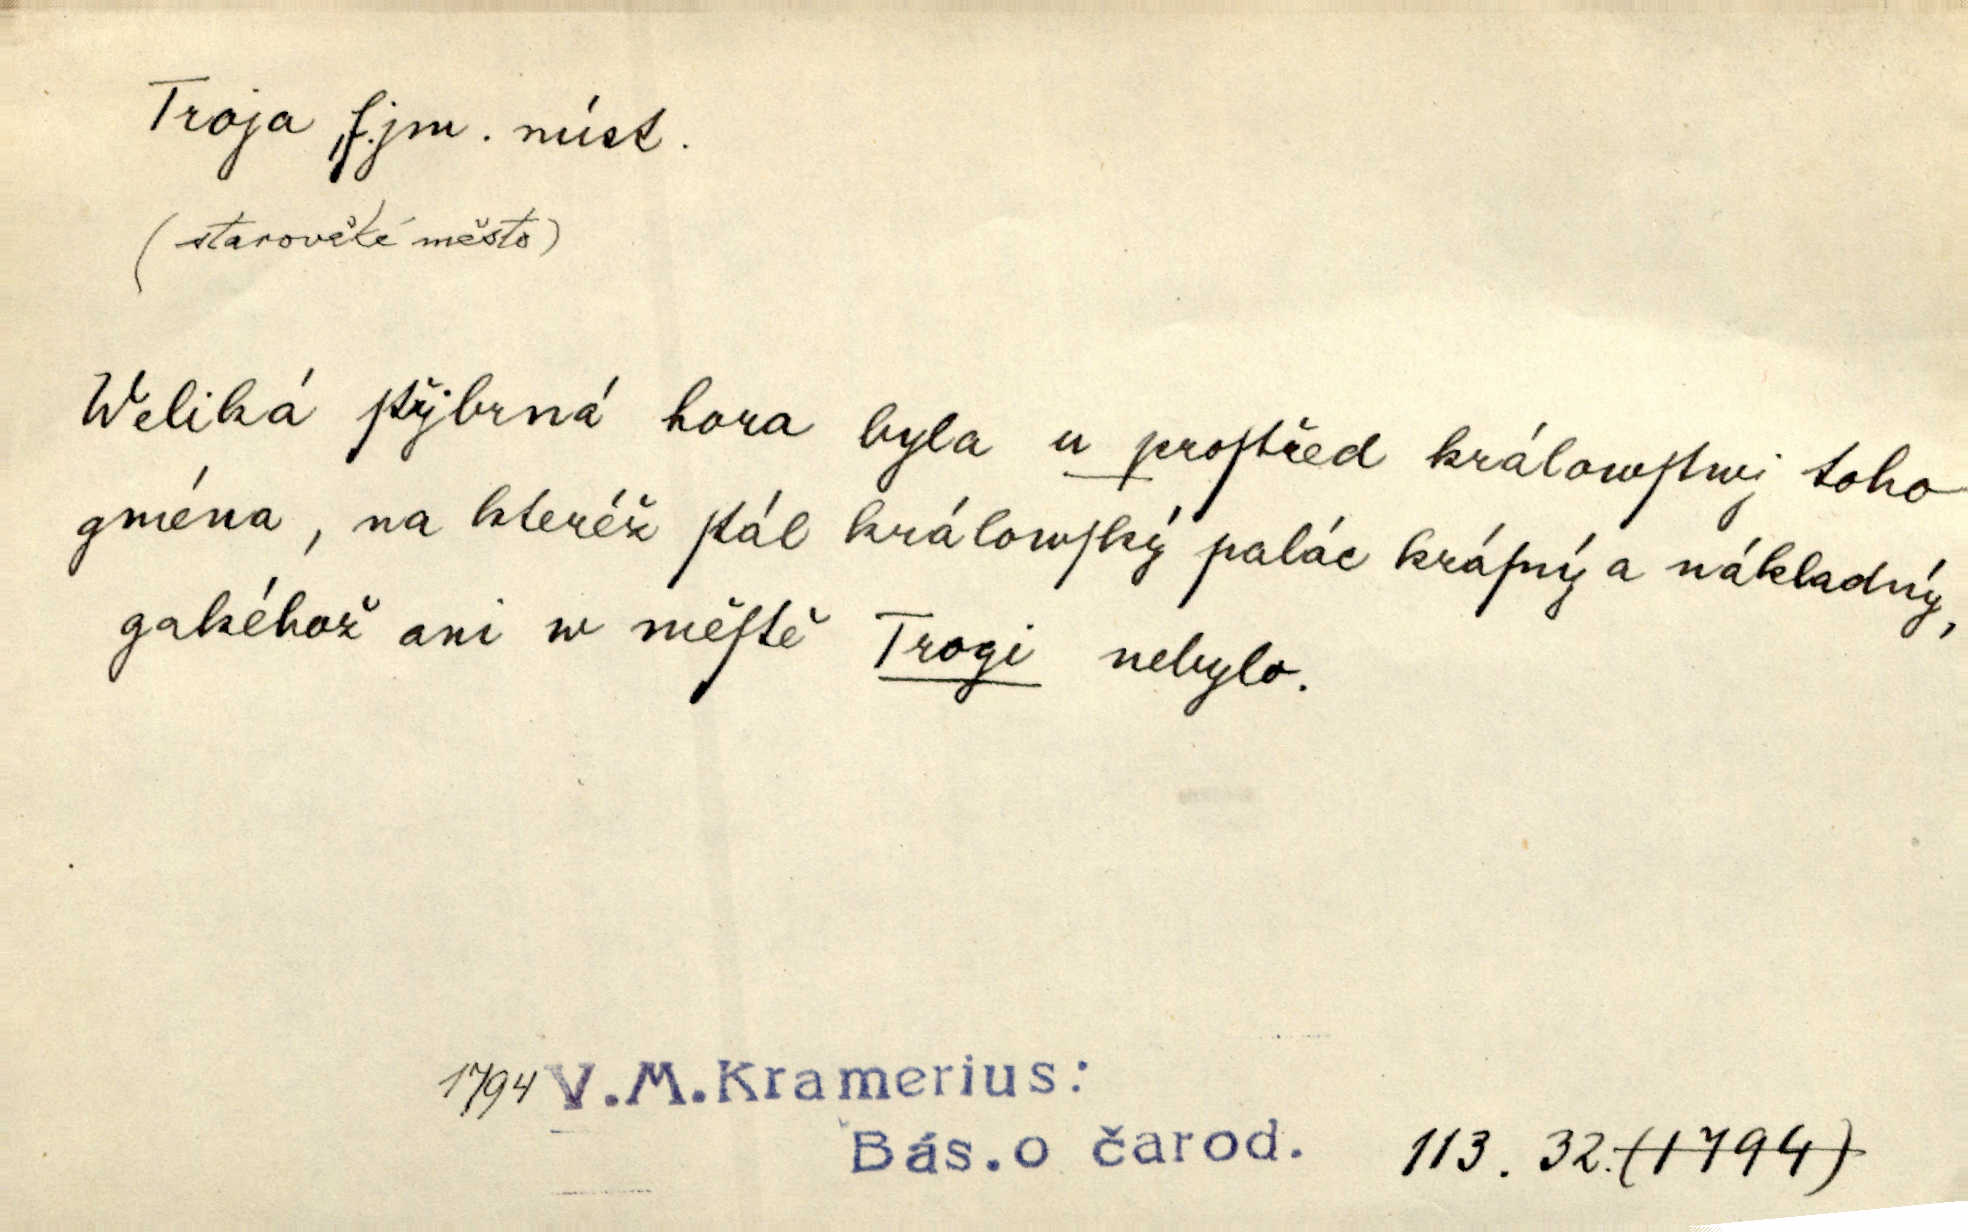 Troja, f. jm. míst.
(starověké město)
Weliká ſtřjbrná hora byla u proſtřed králowſtwj toho
gména, na kteréž ſtál králowſký palác kráſný a nákladný,
gakéhož ani w měſtě Trogi nebylo.
1794 V.M.Kramerius:
Bás.o čarod. 113. 32. (1794)